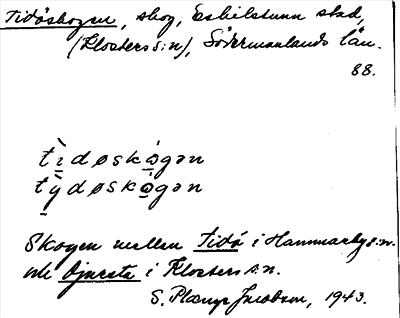 Tidöskogen, skog, Eskilstuna stad,
(Klosters s:n), Södermanlands län.
88.
tìdøskógən
tỳdøskógən
Skogen mellan Tidö i Hammarby s:n.
och Ojursta i Klosters s:n.
S. Plænge Jacobson, 1943.